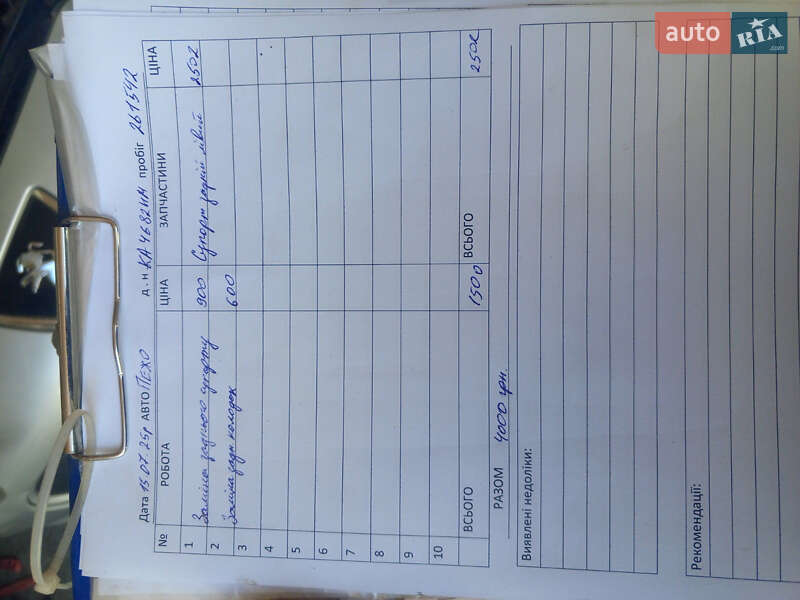 auto RIA .com
Дата 15 07 25р АВТО Пежо д.н КА4682ИМ пробіг 261542
№ РОБОТА ЦІНА ЗАПЧАСТИНИ ЦІНА
1 Заміна заднього супорту 900 Супорт задній лівий 2502
2 Заміна задн колодок 600
3
4
5
6
7
8
9
10
ВСЬОГО 1500 ВСЬОГО 2502
РАЗОМ 4000 грн.
Виявлені недоліки:
Рекомендації: